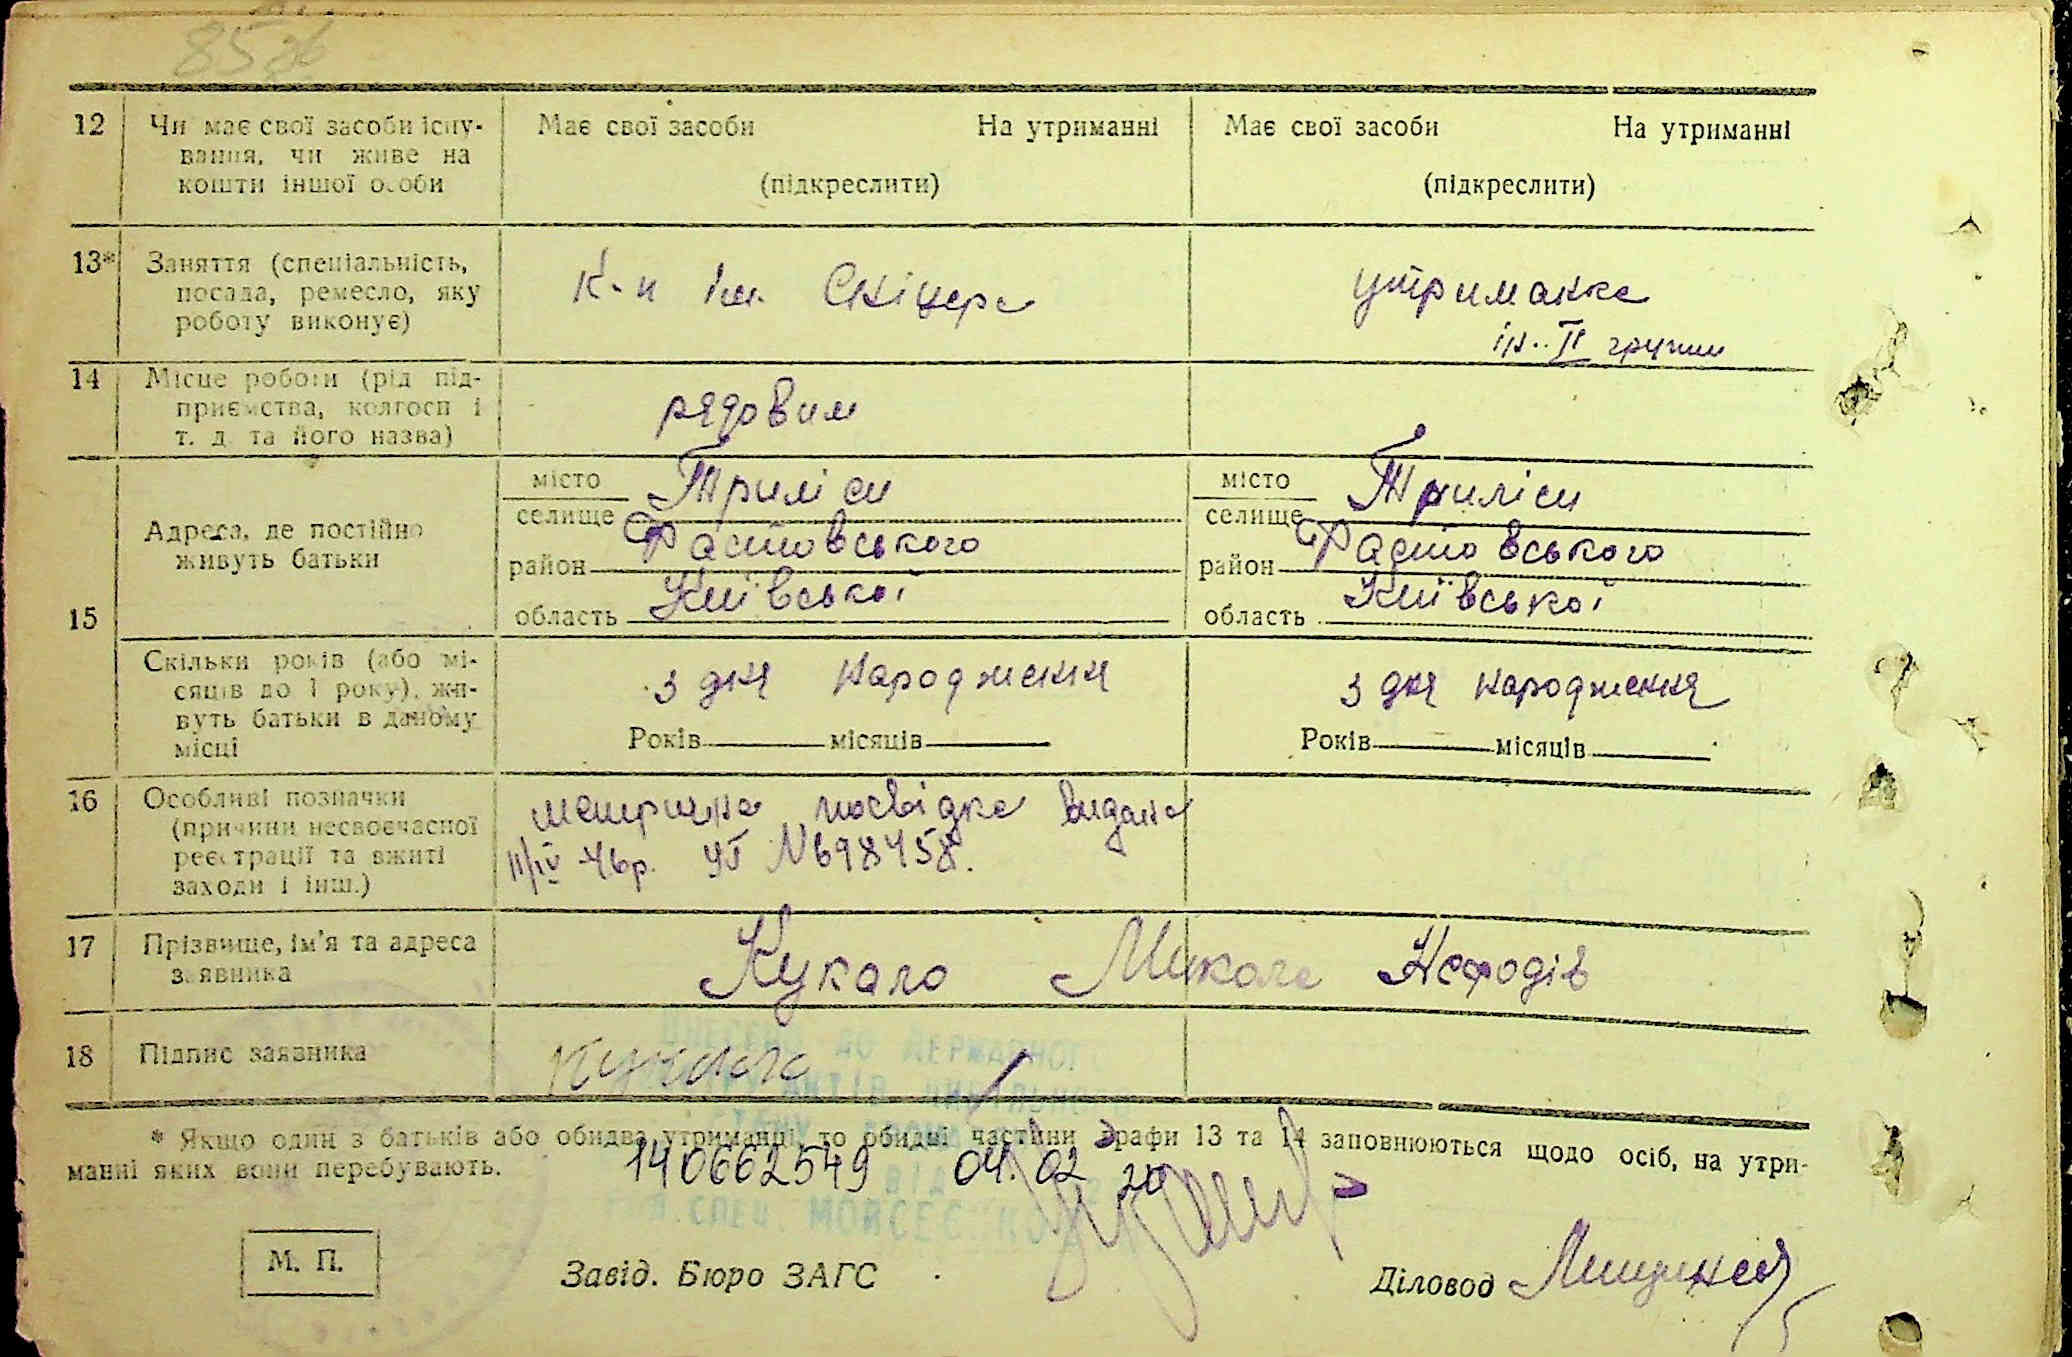 85
12 Чи має свої засоби існу-
вання, чи живе на
кошти іншої особи
Має свої засоби На утриманні
(підкреслити)
Має свої засоби На утриманні
(підкреслити)
13* Заняття (спеціальність,
посада, ремесло, яку
роботу виконує)
к-п ім.
утриманка
ін. II групи
14 Місце роботи (рід під-
приємства, колгосп і
т. д. та його назва)
рядовим
15 Адреса, де постійно
живуть батьки
місто
селище Триліси
район Фастовського
область Київської
місто
селище Триліси
район Фастовського
область Київської
Скільки років (або мі-
сяців до 1 року), жи-
вуть батьки в даному
місці
з дня народження
Років місяців
з дня народження
Років місяців
16 Особливі позначки
(причини несвоєчасної
реєстрації та вжиті
заходи і інш.)
метрична посвідка видана
11/IV-46р. УТ № 698458.
17 Прізвище, ім'я та адреса
заявника
Кукало Микола Нефодів
18 Підпис заявника
ВНЕСЕНО ДО ДЕРЖАВНОГО
АКТІВ ЦИВІЛЬНОГО
СТАНУ
* Якщо один з батьків або обидва утриманці, то обидві частини графи 13 та 14 заповнюються щодо осіб, на утри-
манні яких вони перебувають.
140662549 04.02 20
ВІД
СПЕЦ.
М. П.
Завід. Бюро ЗАГС
Діловод